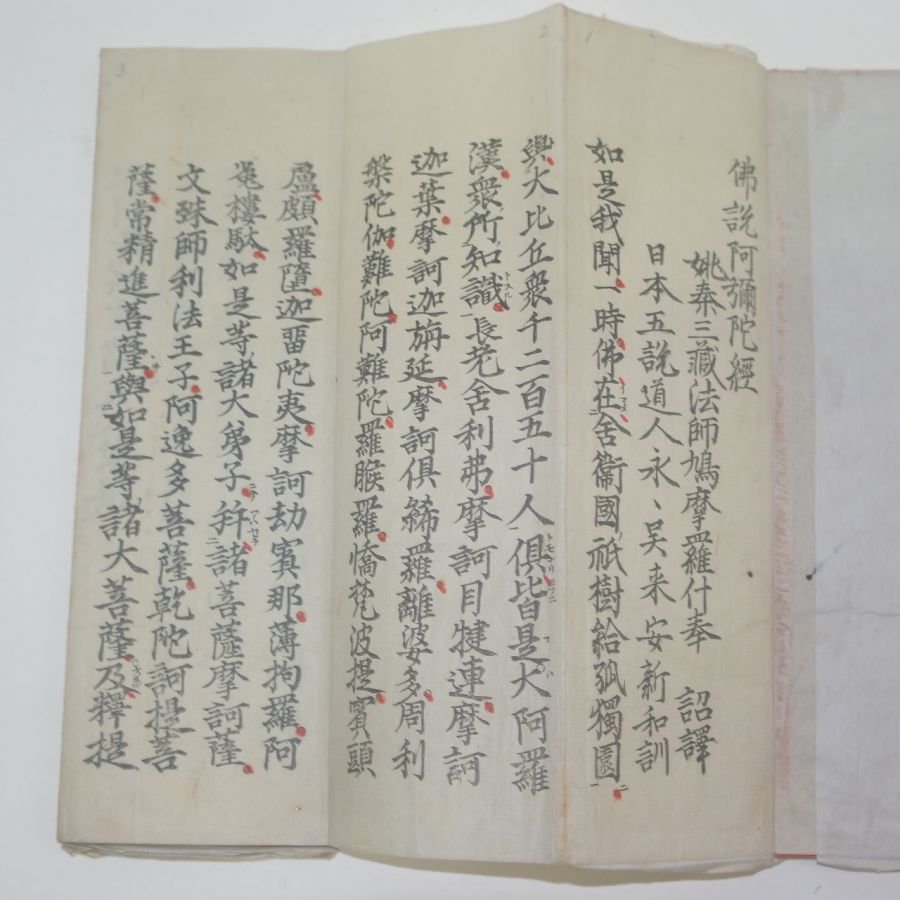 佛説阿彌陀經
姚秦三藏法師鳩摩羅什奉 詔譯
日本五説道人永〻吴来安新和訓
如是我聞一時佛在舍衞國祇樹給孤獨園
與大比丘衆千二百五十人俱皆是大阿羅
漢衆所知識長老舍利弗摩訶目犍連摩訶
迦葉摩訶迦旃延摩訶俱絺羅離婆多周利
槃陀伽難陀阿難陀羅睺羅憍梵波提賓頭
盧頗羅墮迦畱陀夷摩訶劫賓那薄拘羅阿
㝹樓馱如是等諸大弟子幷諸菩薩摩訶薩
文殊師利法王子阿逸多菩薩乾陀訶提菩
薩常精進菩薩與如是等諸大菩薩及釋提
1
2
3